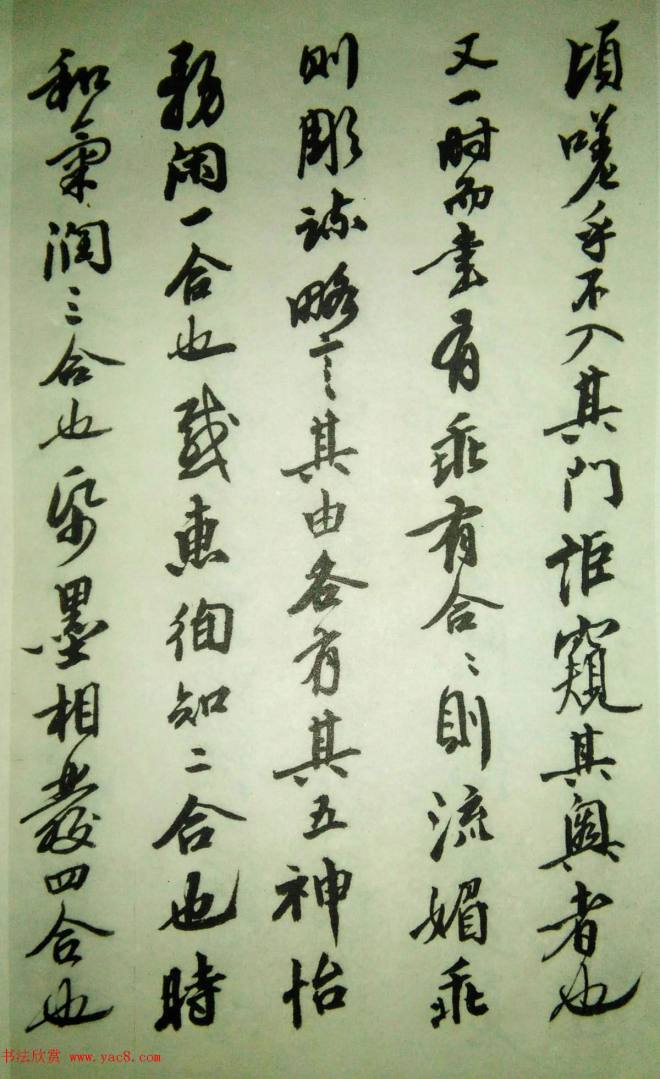 頃嗟乎不入其門詎窺其奧者也
又一时而書有乖有合〻則流媚乖
则彫疎略言其由各有其五神怡
務闲一合也感惠徇知二合也時
和氣潤三合也紙墨相發四合也
书法欣赏 www.yac8.com